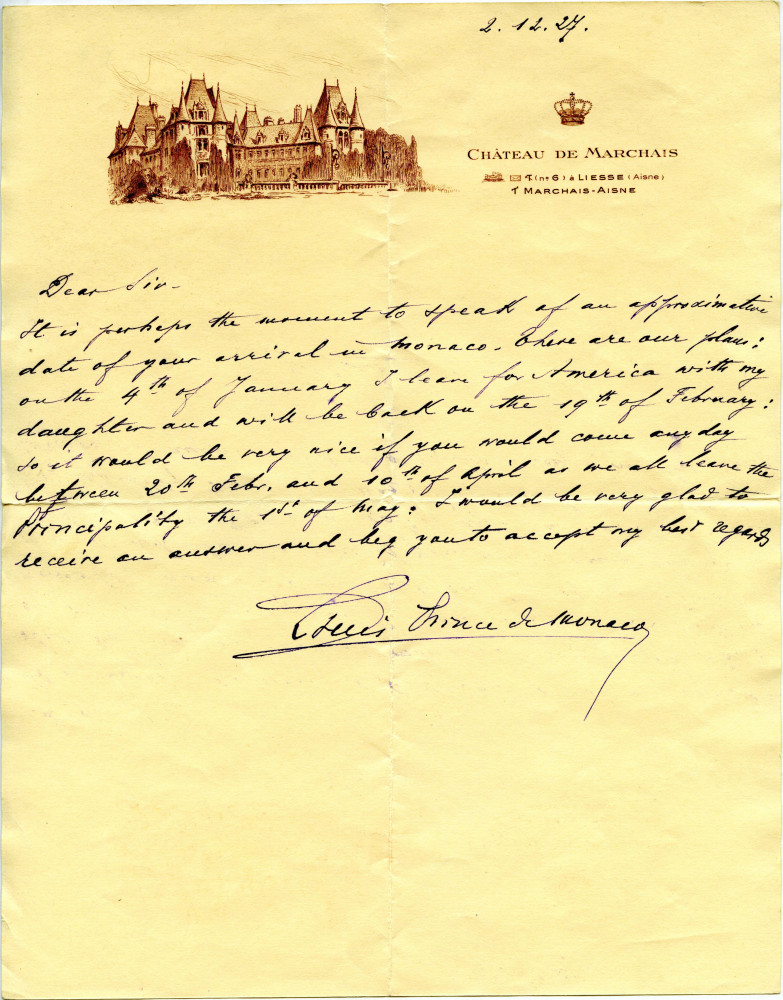 2. 12. 27.
CHÂTEAU DE MARCHAIS
(nº 6) à LIESSE (Aisne)
MARCHAIS-AISNE
Dear Sir-
It is perhaps the moment to speak of an approximative
date of your arrival in Monaco. There are our plans:
on the 4th of January I leave for America with my
daughter and will be back on the 19th of February:
so it would be very nice if you would come any day
between 20th Febr. and 10th of April as we all leave the
Principality the 1st of May: I would be very glad to
receive an answer and beg you to accept my best regards
Louis Prince de Monaco